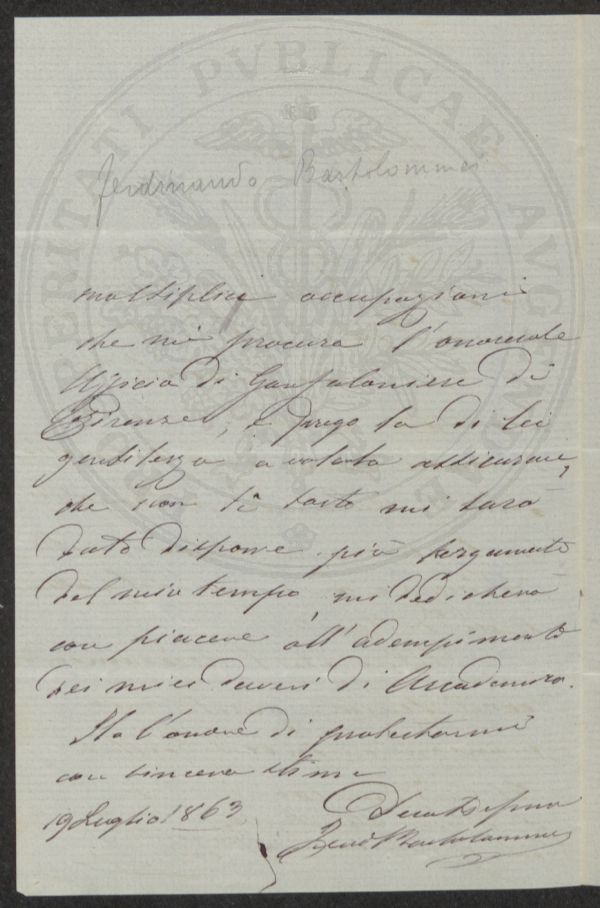 PROSPERITATI PVBLICAE AVGENDAE
Ferdinando Bartolommei
moltiplici occupazioni
che mi procura l'onorevole
Ufficio di Gonfaloniere di
Firenze, e prego la di lei
gentilezza a volerla assicurare,
che non sì tosto mi sarà
dato disporre più largamente
del mio tempo, mi dedicherò
con piacere all'adempimento
dei miei doveri di Accademico.
Ho l'onore di protestarmi
con sincera stima
19 Luglio 1863
Devotissimo
Ferd Bartolommei